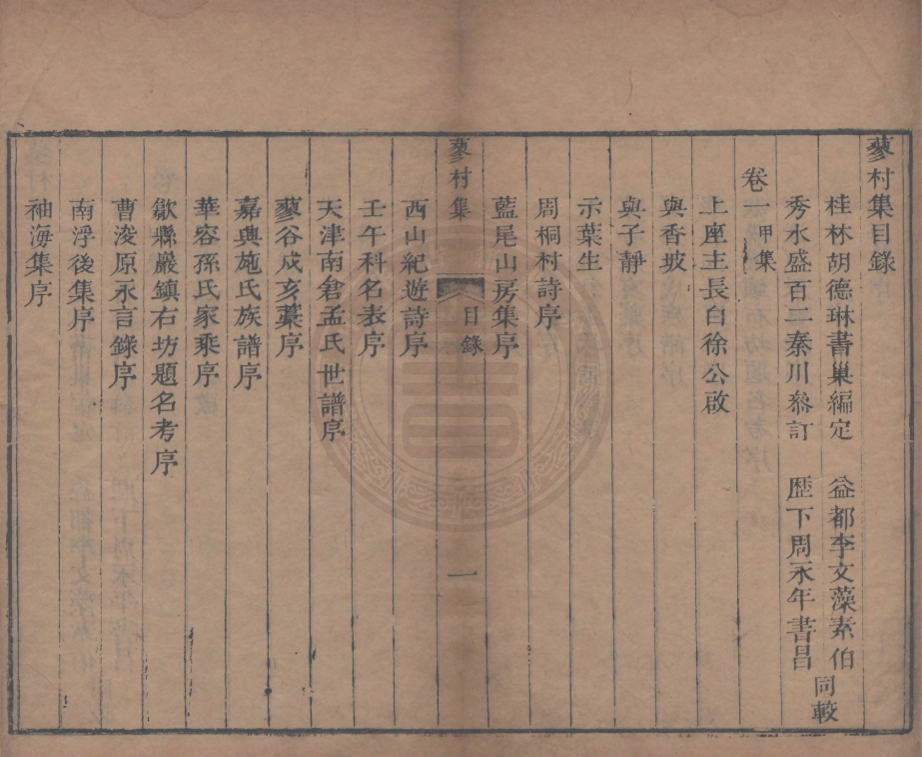 蓼村集目錄
桂林胡德琳書巢編定　益都李文藻素伯
秀水盛百二秦川叅訂　歷下周永年書昌
同較
卷一甲集
上座主長白徐公啟
與香坡
與子靜
示葉生
周桐村詩序
藍尾山房集序
蓼村集　目錄　一
西山紀遊詩序
壬午科名表序
天津南倉孟氏世譜序
蓼谷戍亥藁序
嘉興施氏族譜序
華容孫氏家乘序
歙縣巖鎮右坊題名考序
曹浚原永言錄序
南浮後集序
袖海集序